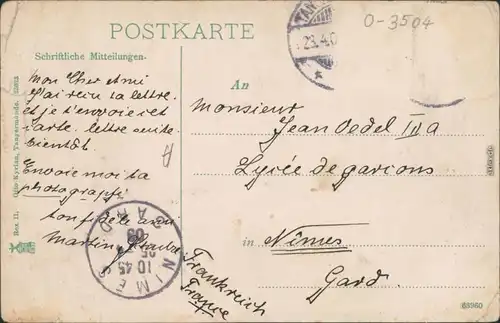 POSTKARTE
O-3504
TAN
23.4.0
Schriftliche Mitteilungen.
An
Mon Cher Ami
J'ai reçu ta lettre
et je t'envoie cet
carte. lettre suite
bientôt
Envoie moi ta
photographi
ton fidèle ami
Martin
Monsieur
Jean Oedel III a
Lycée de garçons
in Nîmes
Gard.
Frankreich
France
NIMES
GARD
10 45
25
09
Rex II. Otto Kyrian, Tangermünde.
63960